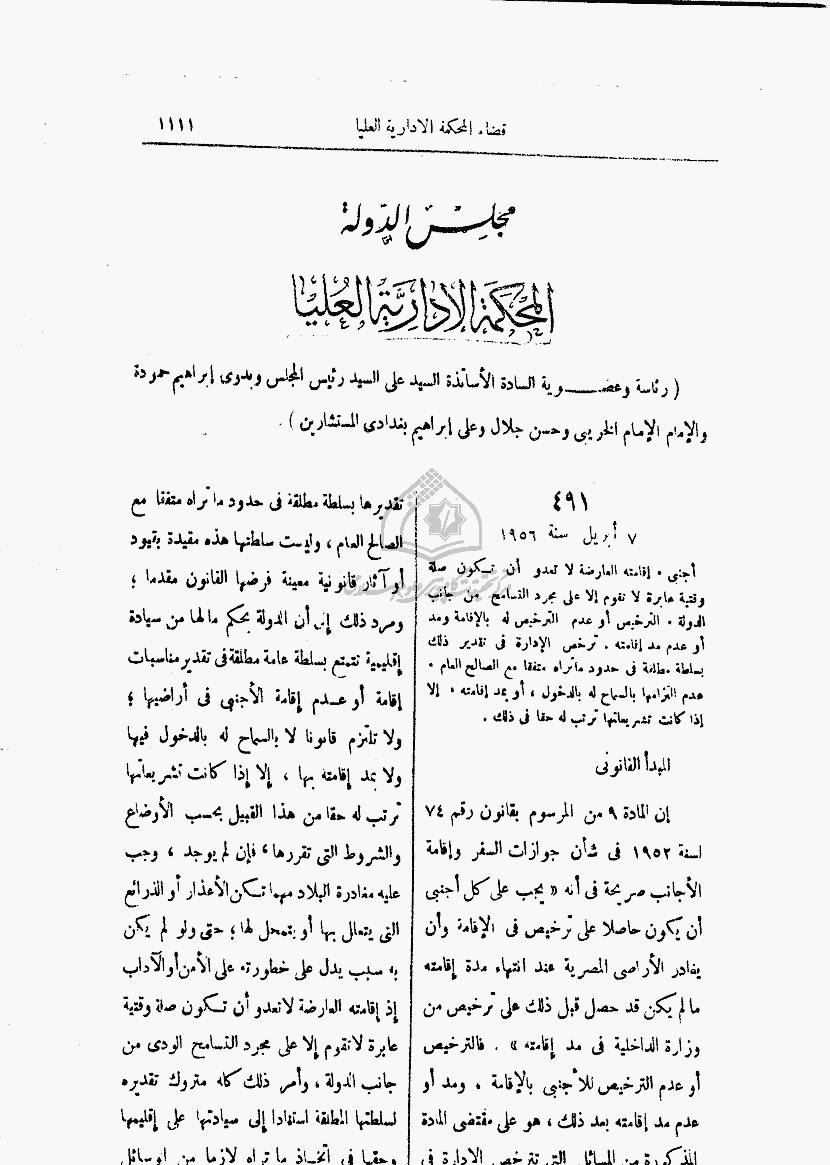 قضاء المحكمة الادارية العليا
١١١١
مجلس الدولة
المحكمة الادارية العليا
( رئاسة وعضوية السادة الأساتذة السيد على السيد رئيس المجلس وبدوى إبراهيم حمودة
والإمام الإمام الخريبى وحسن جلال وعلى إبراهيم بغدادى المستشارين ) .
٤٩١
٧ أبريل سنة ١٩٥٦
أجنبى . إقامته العارضة لا تعدو أن تكون صلة
وقتية عابرة لا تقوم إلا على مجرد التسامح من جانب
الدولة . الترخيص أو عدم الترخيص له بالإقامة ومد
أو عدم مد إقامته . ترخص الإدارة فى تقدير ذلك
بسلطة مطلقة فى حدود ماتراه متفقا مع الصالح العام .
عدم التزامها بالسماح له بالدخول ، أو بمد إقامته . إلا
إذا كانت تشريعاتها ترتب له حقا فى ذلك .
المبدأ القانونى
إن المادة ٩ من المرسوم بقانون رقم ٧٤
لسنة ١٩٥٢ فى شأن جوازات السفر وإقامة
الأجانب صريحة فى أنه « يجب على كل أجنبى
أن يكون حاصلا على ترخيص فى الإقامة وأن
يغادر الأراضى المصرية عند انتهاء مدة إقامته
مالم يكن قد حصل قبل ذلك على ترخيص من
وزارة الداخلية فى مد إقامته » . فالترخيص
أو عدم الترخيص للأجنبى بالإقامة ، ومد أو
عدم مد إقامته بعد ذلك ، هو على مقتضى المادة
المذكورة من المسائل التى تترخص الإدارة فى
تقديرها بسلطة مطلقة فى حدود ماتراه متفقا مع
الصالح العام ، وليست سلطتها هذه مقيدة بقيود
أو آثار قانونية معينة فرضها القانون مقدما ؛
ومرد ذلك إلى أن الدولة بحكم مالها من سيادة
إقليمية تتمتع بسلطة عامة مطلقة فى تقدير مناسبات
إقامة أو عدم إقامة الأجنبى فى أراضيها ؛
ولا تلتزم قانونا لا بالسماح له بالدخول فيها
ولا بمد إقامته بها ، إلا إذا كانت تشريعاتها
ترتب له حقا من هذا القبيل بحسب الأوضاع
والشروط التى تقررها ، فإن لم يوجد ، وجب
عليه مغادرة البلاد مهما تكن الأعذار أو الذرائع
التى يتعلل بها أو يتمحل لها ؛ حتى ولو لم يكن
به سبب يدل على خطورته على الأمن أو الآداب
إذ إقامته العارضة لاتعدو أن تكون صلة وقتية
عابرة لاتقوم إلا على مجرد التسامح الودى من
جانب الدولة ، وأمر ذلك كله متروك تقديره
لسلطتها المطلقة استنادا إلى سيادتها على إقليمها
وحقها فى اتخاذ ما تراه لازما من الوسائل